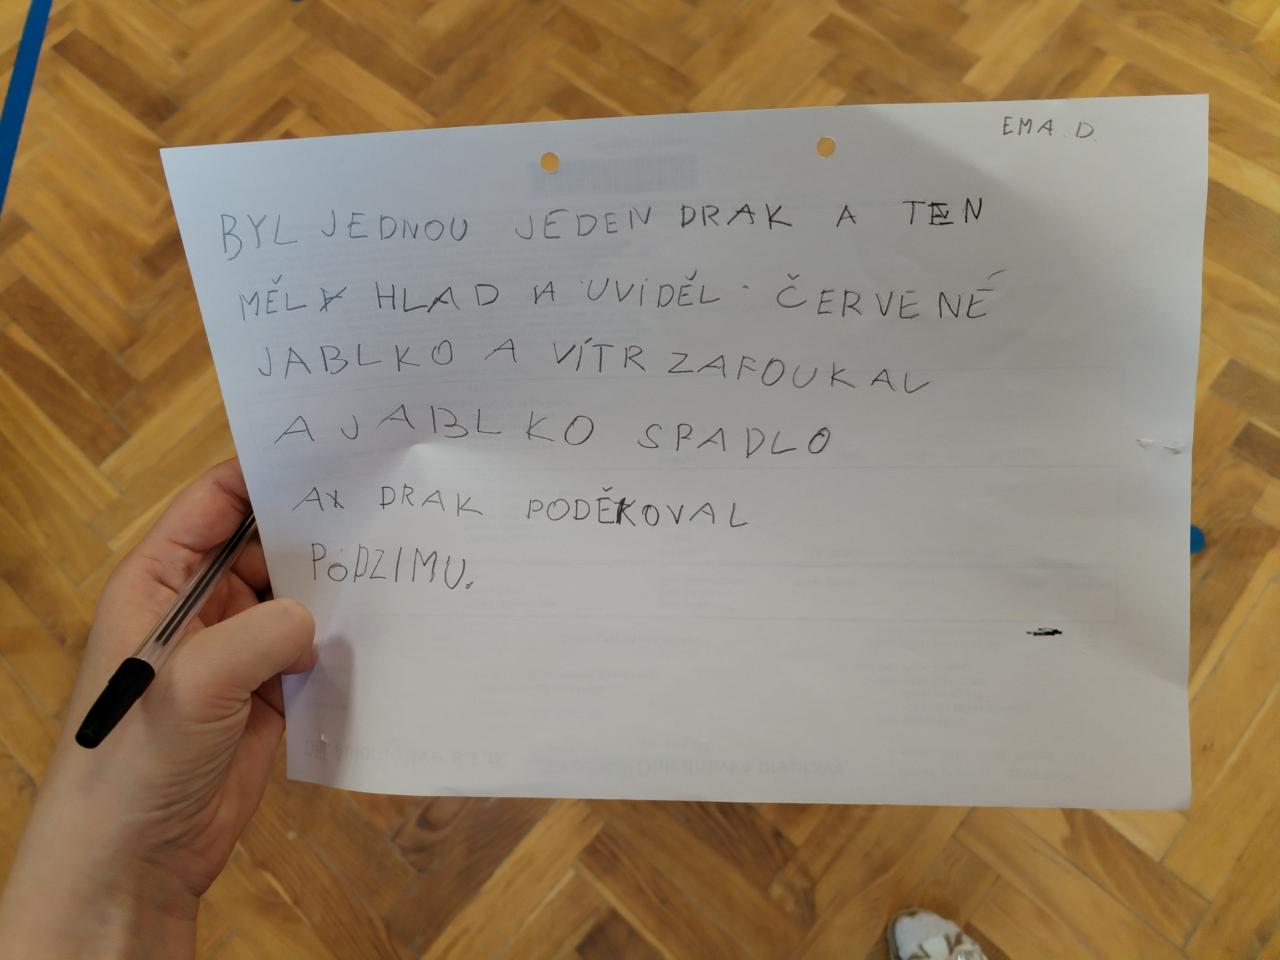 EMA D.
BYL JEDNOU JEDEN DRAK A TEN
MĚL HLAD A UVIDĚL ČERVENÉ
JABLKO A VÍTR ZAFOUKAL
A JABLKO SPADLO
A DRAK PODĚKOVAL
PODZIMU.